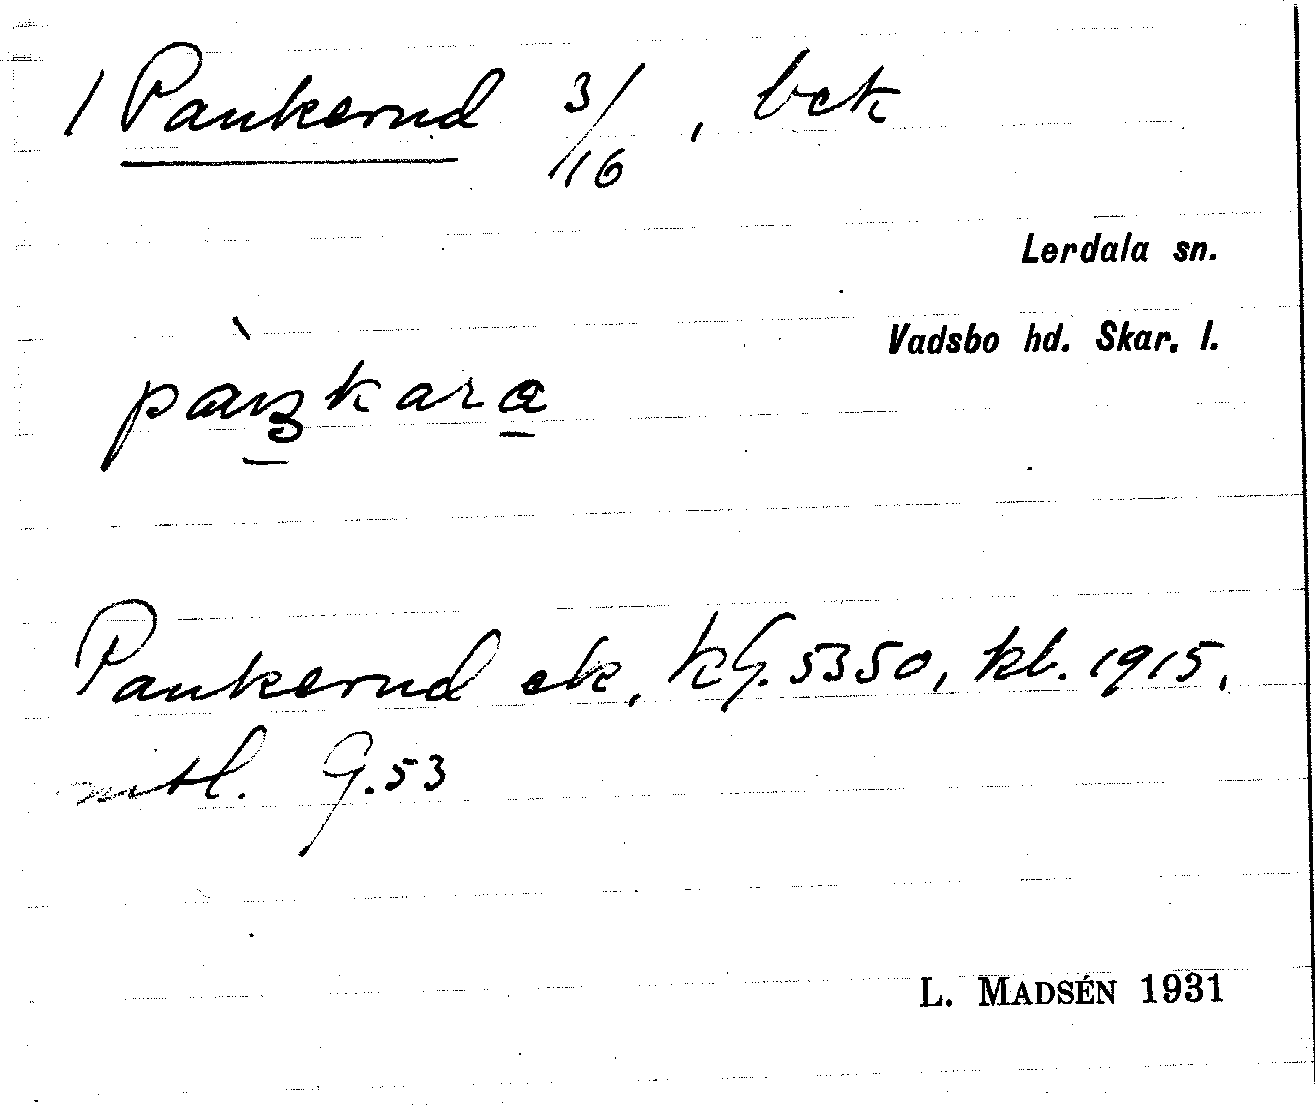 1 Pankerud 3/16, bek
Lerdala sn.
Vadsbo hd. Skar. l.
Pankerud ek, kG. 5350, kb. 1915,
mtl. G.53
L. MADSÉN 1931